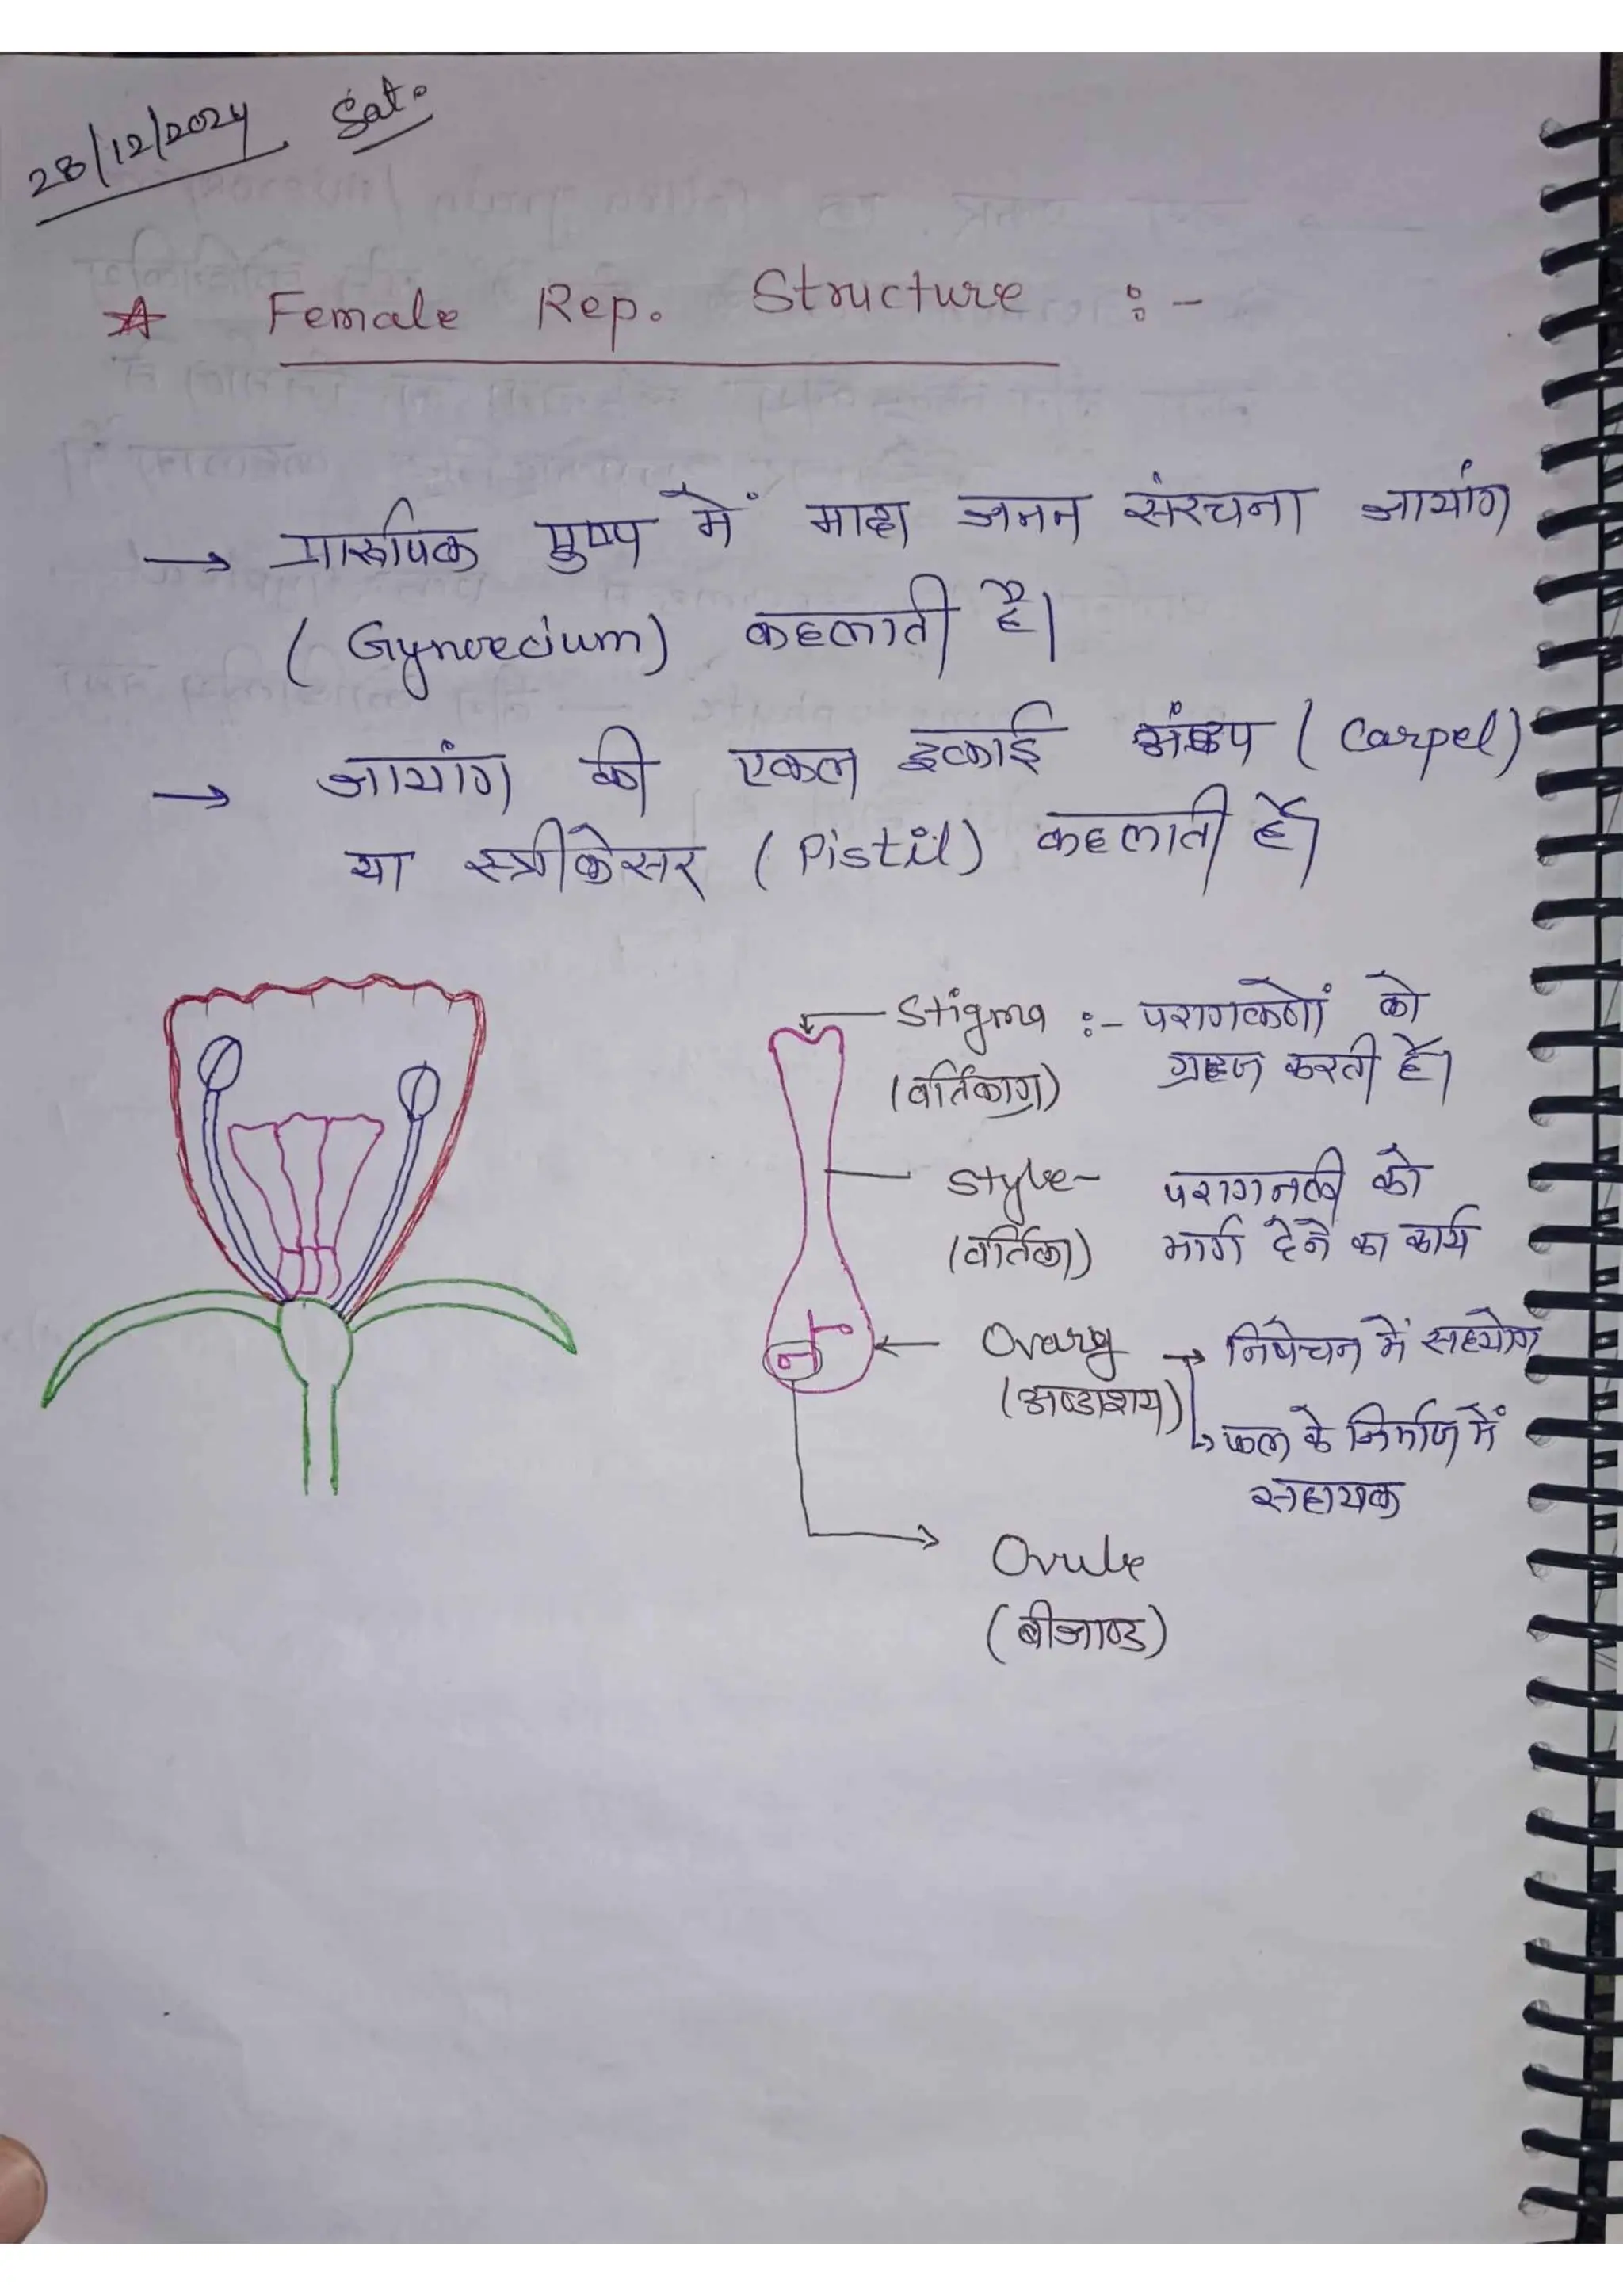 28/12/2024 Sat.
☆ Female Rep. Structure :-
→ प्रारूपिक पुष्प में मादा जनन संरचना जायांग
(Gynoecium) कहलाती है।
→ जायांग की एकल इकाई अंडप (Carpel)
या स्त्रीकेसर (Pistil) कहलाती है।
Stigma :- परागकणों को
(वर्तिकाग्र) ग्रहण करती है।
Style- परागनली को
(वर्तिका) मार्ग देने का कार्य
Ovary → निषेचन में सहयोग
(अण्डाशय) ↳ फल के निर्माण में
सहायक
Ovule
(बीजाण्ड)